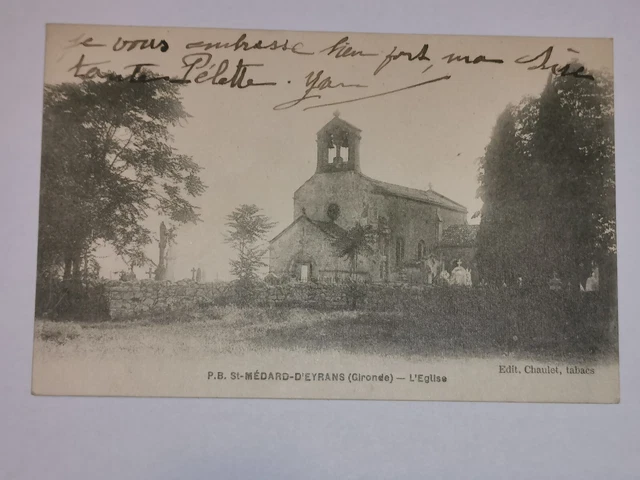 je vous embrasse bien fort, ma chère
tante Pélette. Yan
P.B. St-MÉDARD-D'EYRANS (Gironde) — L'Eglise
Edit. Chaulet, tabacs